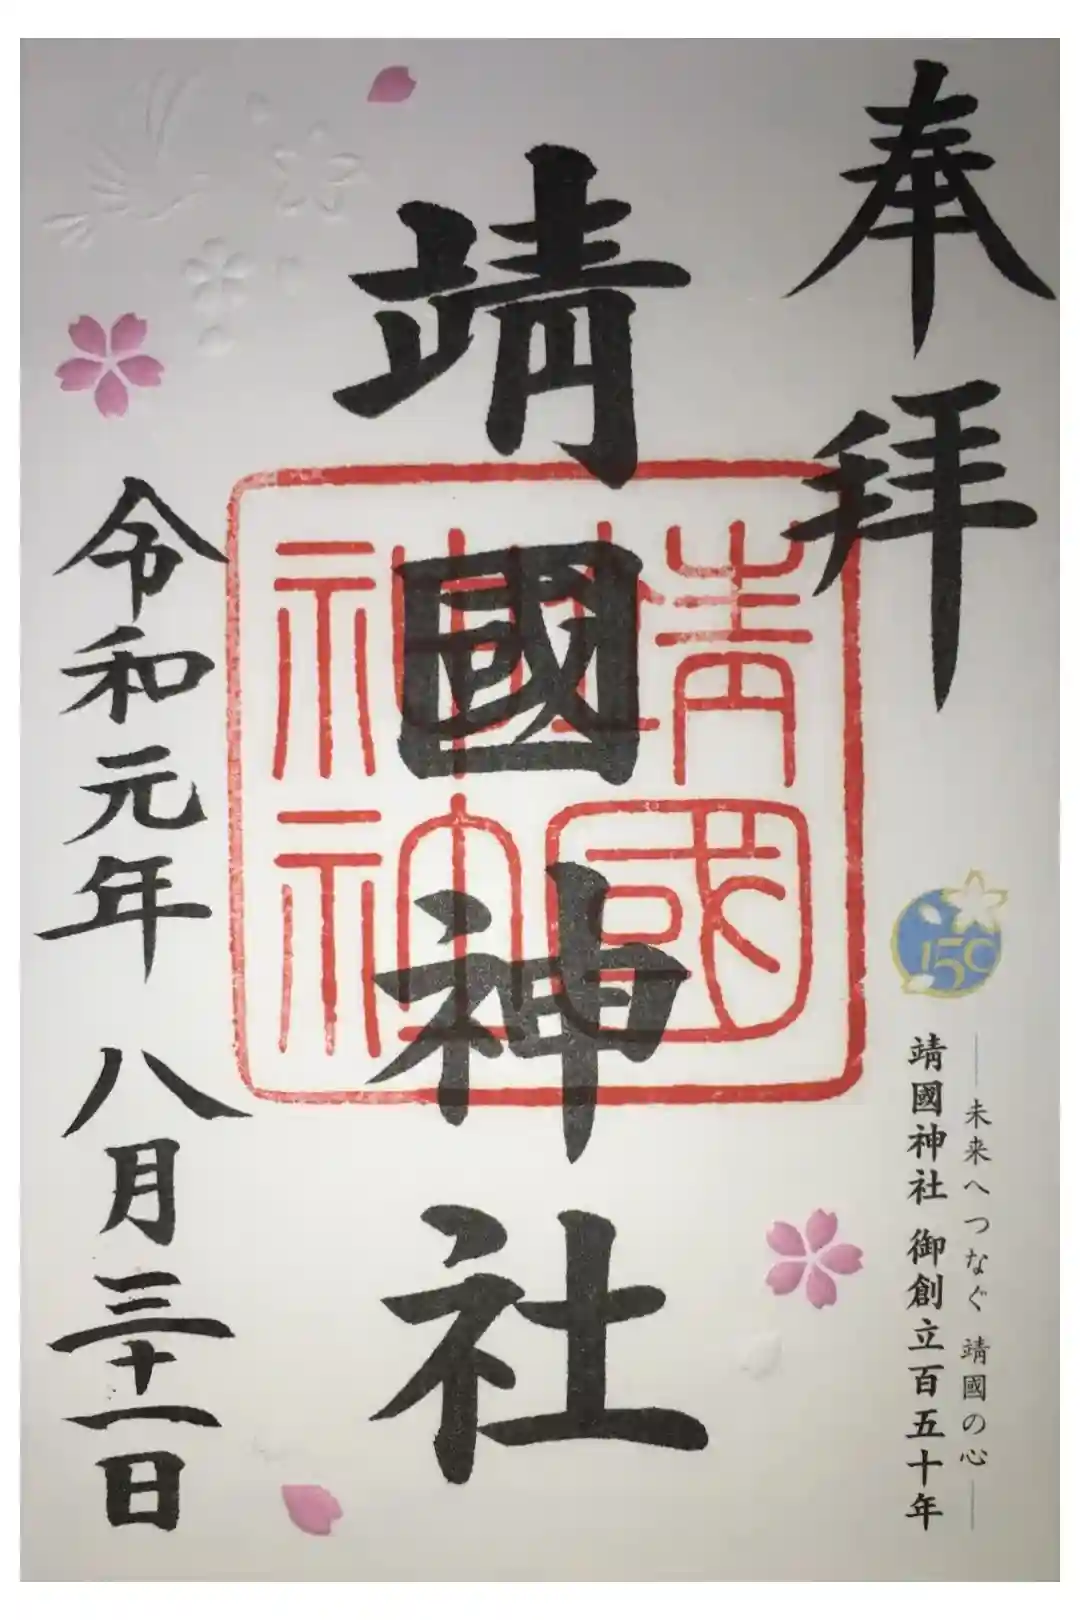 奉拝
150
―未来へつなぐ 靖國の心―
靖國神社 御創立百五十年
靖國神社
靖國神社
令和元年 八月三十一日